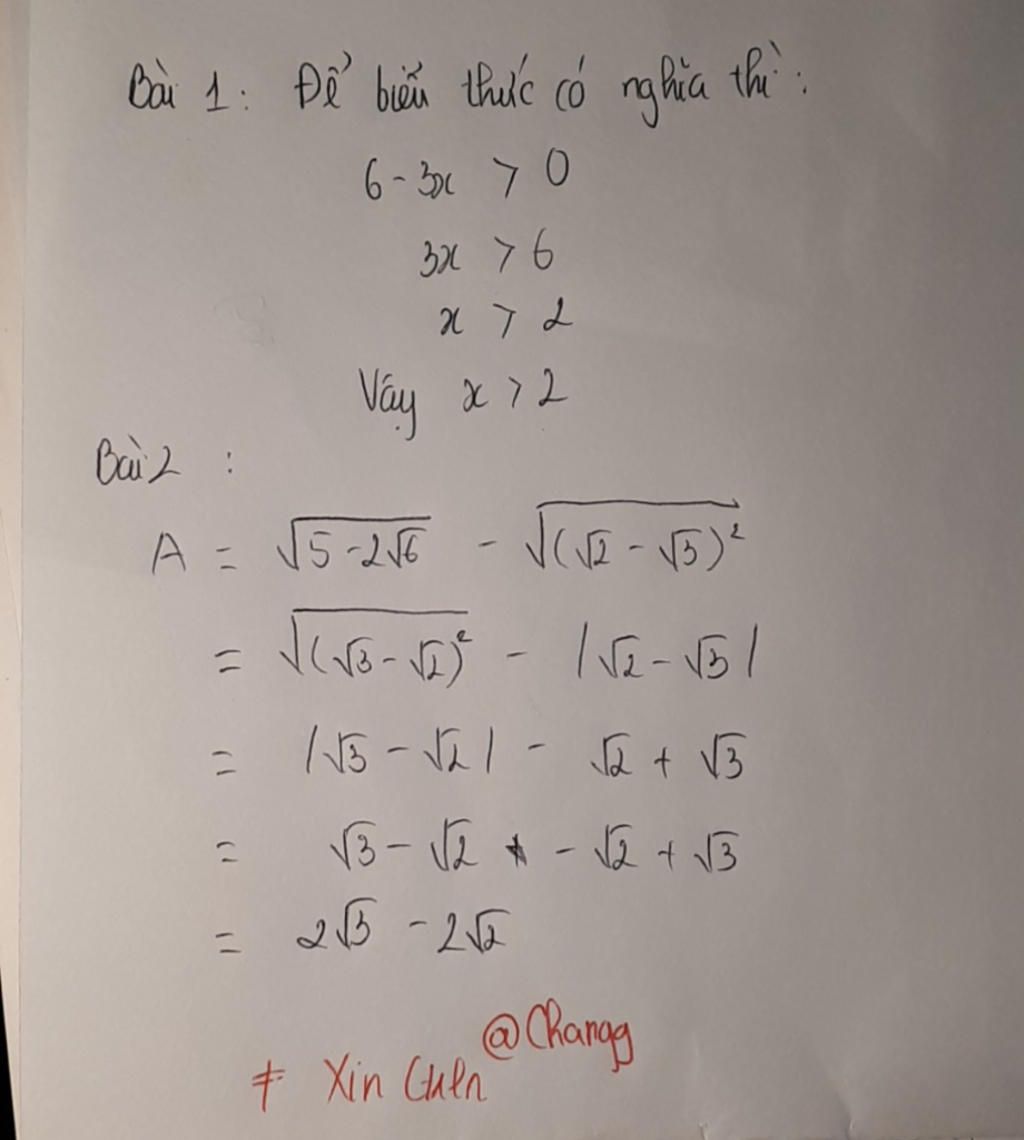 Bài 1: Để biểu thức có nghĩa thì:
6 - 3x > 0
3x > 6
x > 2
Vậy x > 2
Bài 2 :
A = √(5 - 2√6) - √((√2 - √3)²)
= √((√3 - √2)²) - |√2 - √3|
= |√3 - √2| - √2 + √3
= √3 - √2 - √2 + √3
= 2√3 - 2√2
@Changg
# Xin CHLN